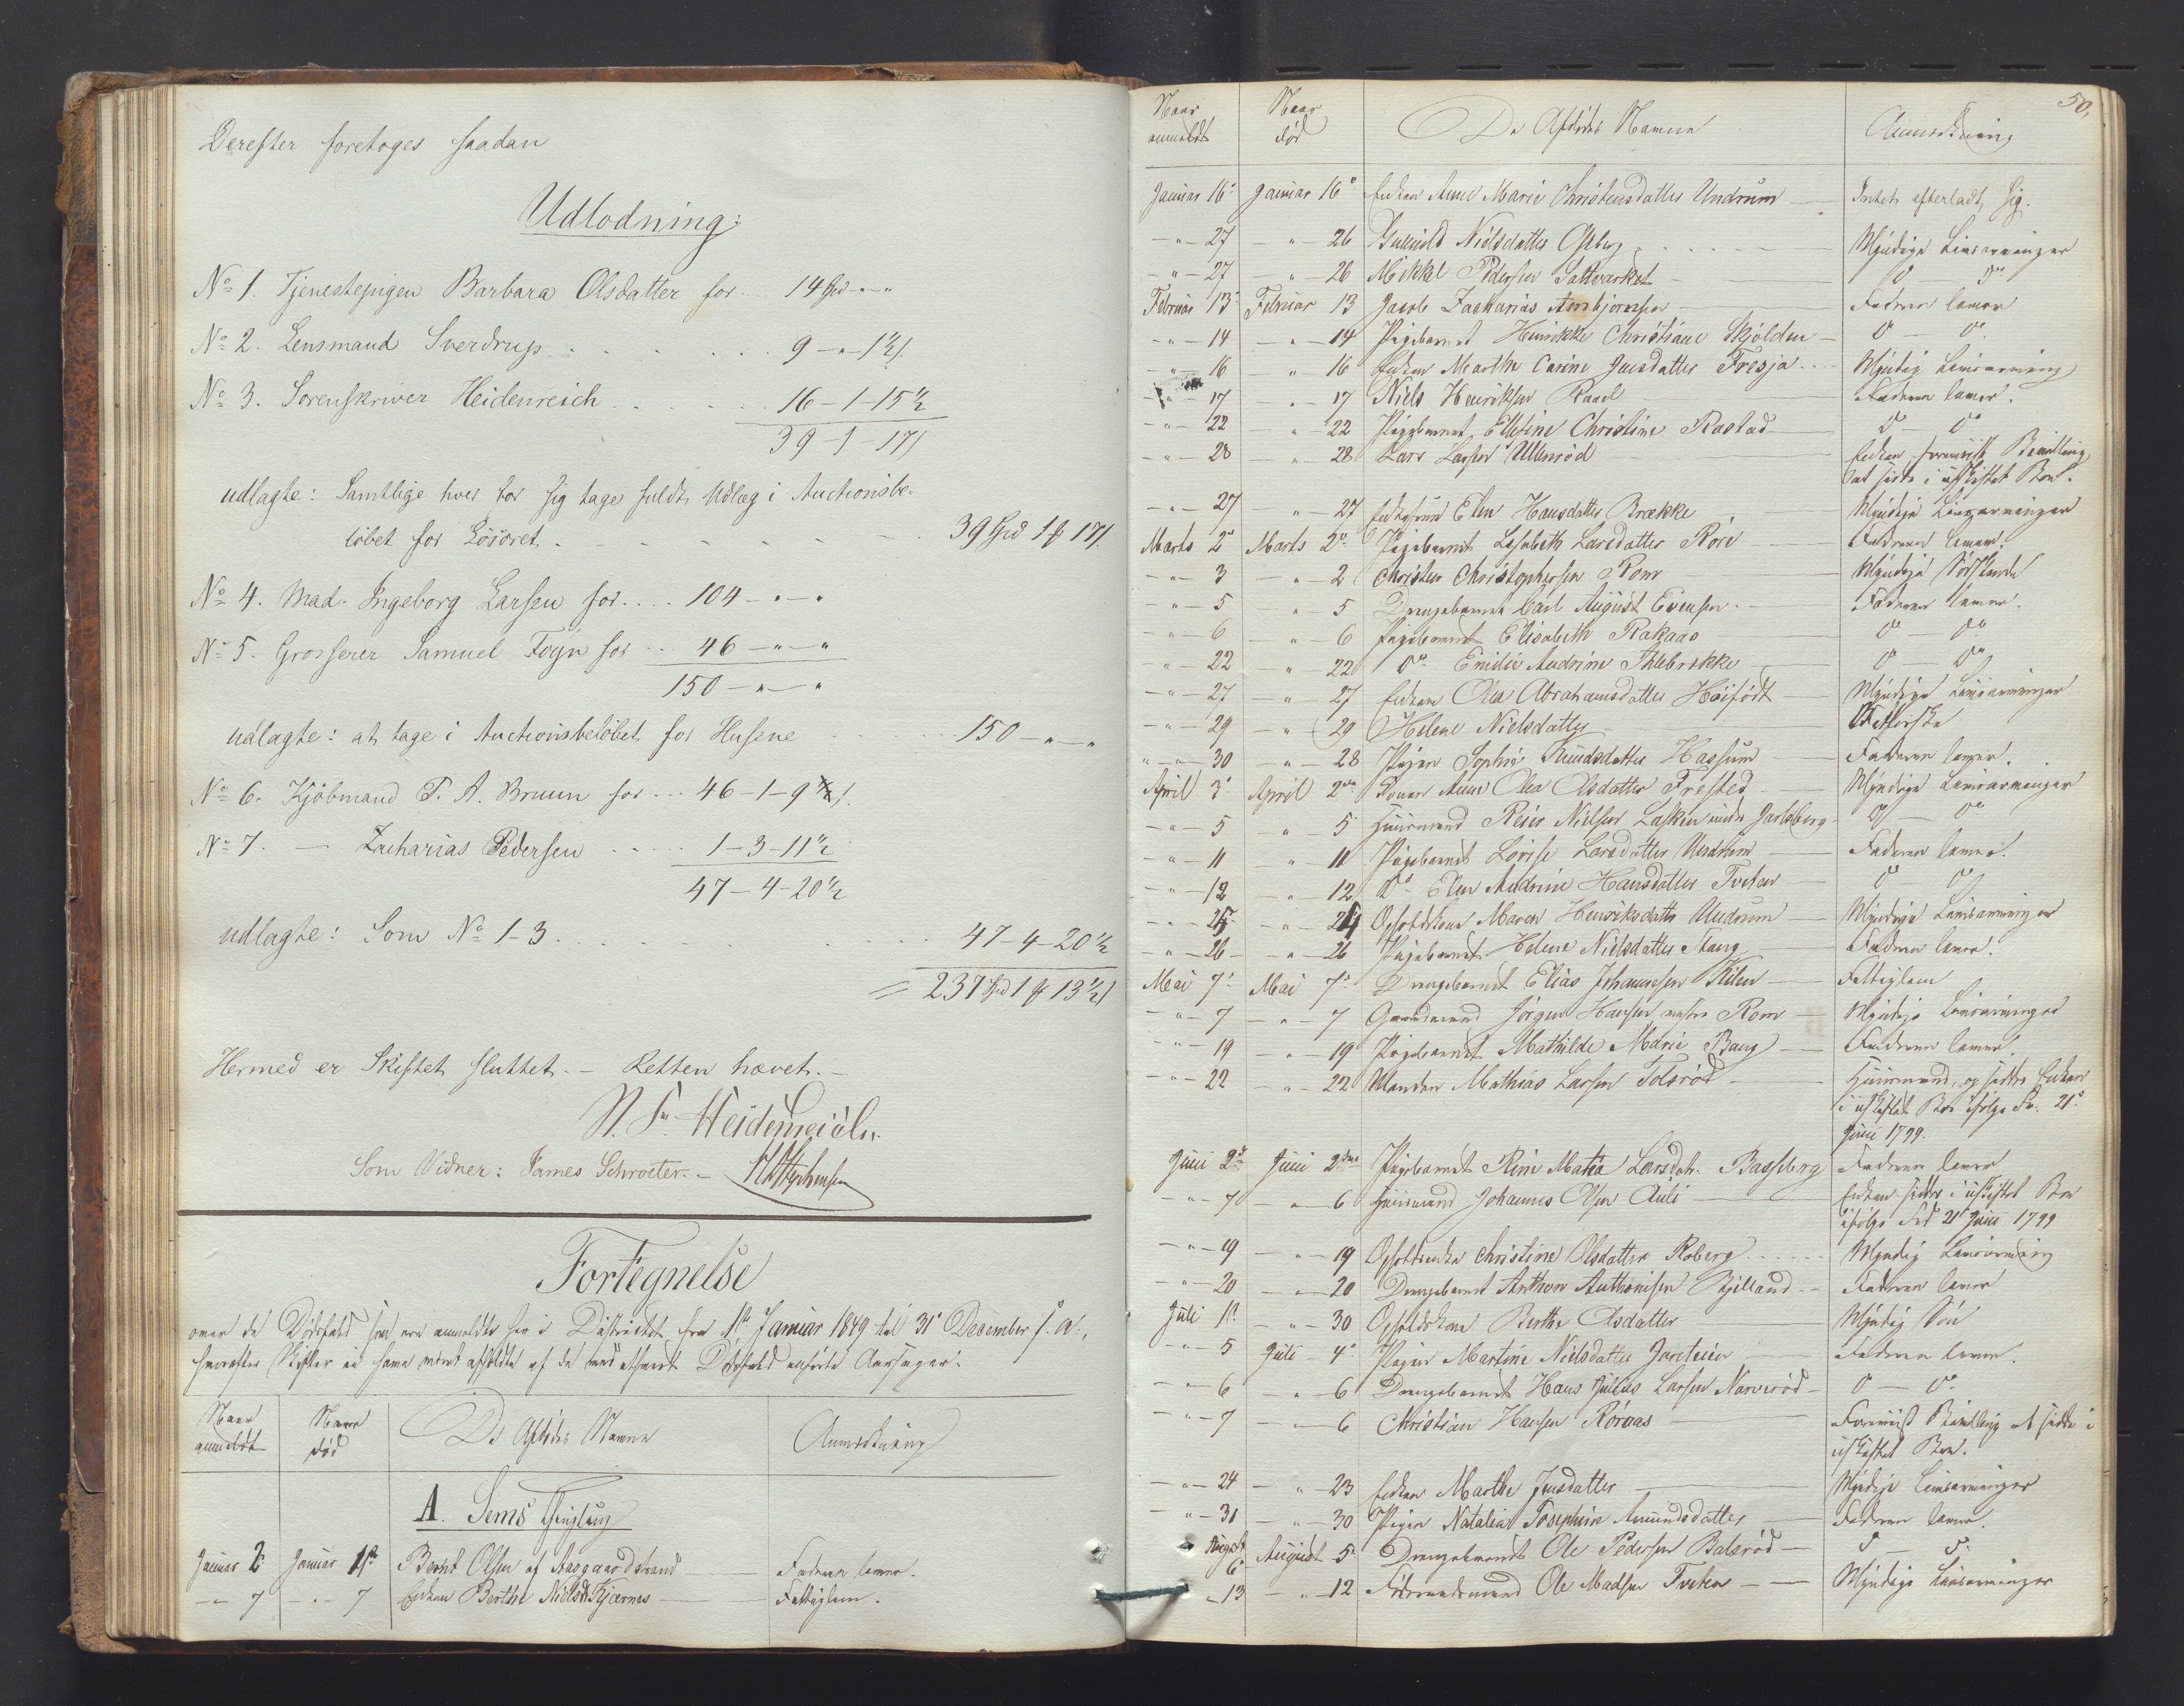 Derefter foretoges saadan
Udlodning:
No 1. Tjenestepigen Barbara Olsdatter for ... 14 Spd - " - "
No 2. Lensmand Sverdrup . . . . . . 9 - " - 1½
No 3. Sorenskriver Heidenreich . . . . . 16 - 1 - 15½
39 - 1 - 17
udlagte: Samtlige hver for sig tage fuldt Udlæg i Auctionsbe-
löbet for Lösöret . - - - - - - - 39 Spd 1 17
No 4. Mad. Ingeborg Larsen for .... 104 - " - "
No 5. Grosserer Samuel Foyn for ... 46 - " - "
150 - " - "
udlagte: at tage i Auctionsbelöbet for Husene 150 - " - "
No 6. Kjöbmand P. A. Bruun for ... 46 - 1 - 9
No 7. — Zacharias Pedersen ..... 1 - 3 - 11½
47 - 4 - 20½
udlagte: Som No 1-3 . . . . . . . . 47 - 4 - 20½
= 237 Spd 1 13½
Hermed er Skiftet sluttet. - Retten hævet. -
Heidenreich.
Som Vidner: James Schroeter. -
Fortegnelse
over de Dödsfald som ere anmeldte her i Districtet fra 1ste Januar 1849 til 31 December s. A.,
hvorefter Skifter ei have været afholdte af de ved ethvert Dödsfald anförte Aarsager.
Naar anmeldt | Naar död | De Afdödes Navne | Anmærkning
A. Sems Thinglaug
Januar 2 | Januar 1ste | Bernt Olsen af Aasgaardstrand | Faderen lever.
- " - 7 | - " - 7 | Enken Berthe Nielsdtr Kjærnes | Fattiglem.
50.
Naar anmeldt | Naar död | De Afdödes Navne | Anmærkning
Januar 16 | Januar 16 | Enken Anne Marie Christensdatter Undrum | Intet efterladt sig.
- " - 27 | - " - 26 | Gunhild Nielsdatter Oseberg | Myndige Livsarvinger
- " - 27 | - " - 26 | Mikkel Pedersen Saltværket | do do
Februar 13 | Februar 13 | Jacob Zacharias Arnbjörnsen | Faderen lever
- " - 14 | - " - 14 | Pigebarnet Henrikke Christiane Skjölden | do do
- " - 16 | " - 16 | Enken Marthe Carine Jensdatter Fresja | Myndig Livsarving
- " - 17 | - " - 17 | Niels Henriksen Raael | Faderen lever.
- " - 22 | " - 22 | Pigebarnet Christine Rastad | do do
- " - 28 | " - 28 | Lars Larsen Ullensröd | Enken foreviist Bevilling
at sidde i uskiftet Boe.
- " - 27 | " - 27 | Elen Hansdatter Brække | Myndige Livsarvinger
Marts 2 | Marts 2 | Pigebarnet Lisabeth Larsdatter Röre | Faderen lever.
- " - 3 | - " - 2 | Christen Christophersen Rom | Myndige Södskende
- " - 5 | " - 5 | Drengebarnet Carl August Evensen | Faderen lever.
- " - 6 | " - 6 | Pigebarnet Elisabeth Rakaas | do do
- " - 22 | " 22 | do Emilie Andrine Ihlebrække | do do
- " - 27 | " - 27 | Enken Olea Abrahamsdatter Höifödt | Myndige Livsarvinger
- " - 29 | - " - 29 | Helene Nielsdatter
" - " - 30 | - " - 28 | Pigen Sophie Knudsdatter Hassum | Faderen lever.
April 3 | April 2den | Konen Anne Olea Olsdatter Frested | Myndige Livsarvinger
- " - 5 | - " - 5 | Huusmand Reier Nielsen Lasken under Jarlsberg | do do
- " - 11 | " - 11 | Pigebarnet Lovise Larsdatter Undrum | Faderen lever.
- " - 12 | - " - 12 | do Elen Andrine Hansdatter Tveten | do do
- " - 25 | - " - 24 | Maren Henriksdatter Undrum | Myndige Livsarvinger
- " - 26 | - " - 26 | Pigebarnet Helene Nielsdatter Stang | Faderen lever.
Mai 7 | Mai 7 | Drengebarnet Elias Johannessen Kilen | Fattiglem
- " - 7 | - " - 7 | Gaardmand Jörgen Hansen Rom | Myndige Livsarvinger
- " - 19 | - " - 19 | Pigebarnet Mathilde Marie Bang | Faderen lever
- " - 22 | - " - 22 | Manden Mathias Larsen Tolsröd | Huusmand, og sidder Enken
i uskiftet Boe ifölge Fr. 21
Juni 1799.
Juni 2 | Juni 2den | Pigebarnet Mathea Larsdatr. Basberg | Faderen lever
- " - 7 | - " - 6 | Huusmand Johannes Olsen Auli | Enken sidder i uskiftet Boe
ifölge Frd 21 Juni 1799
- " - 19 | - " - 19 | Christine Olsdatter Roberg | Myndig Livsarving
- " - 20 | - " - 20 | Drengebarnet Anthon Anthonisen Kjelland | Faderen lever
Juli 1 | - " - 30 | Berthe Olsdatter | Myndig Sön
- " - 5 | Juli - 4 | Pigen Martine Nielsdatter Jareteien | Faderen lever.
- " - 6 | - " - 6 | Drengebarnet Hans Julius Larsen Narveröd | do do
- " - 7 | - " - 6 | Christian Hansen Röraas | Foreviist Bevilling at sidde i
uskiftet Boe.
- " - 24 | - " - 23 | Enken Marthe Jensdatter | Myndige Livsarvinger
- " - 31 | - " - 30 | Pigen Natalia Josephine Amundsdatter | Faderen lever.
August 6 | August 5 | Drengebarnet Ole Pedersen Balsröd | do do
- 13 | - " - 12 | Föderaadsmand Ole Madsen Tveten | Myndige Livsarvinger